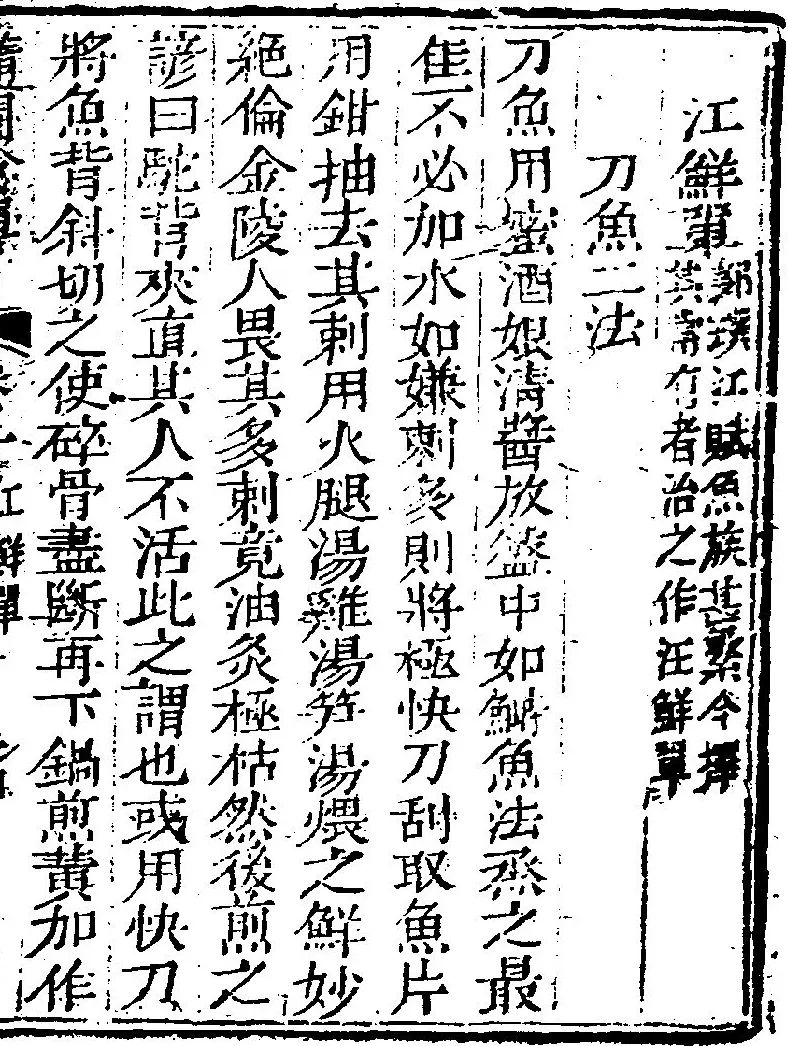 江鮮單郭璞江賦魚族甚繁今擇
其常有者治之作江鮮單
刀魚二法
刀魚用蜜酒娘淸醬放盤中如鰣魚法蒸之最
佳不必加水如嫌刺多則將極快刀刮取魚片
用鉗抽去其刺用火腿湯雞湯笋湯煨之鮮妙
絕倫金陵人畏其多刺竟油炙極枯然後煎之
諺曰駝背夾直其人不活此之謂也或用快刀
將魚背斜切之使碎骨盡斷再下鍋煎黃加作
江鮮單